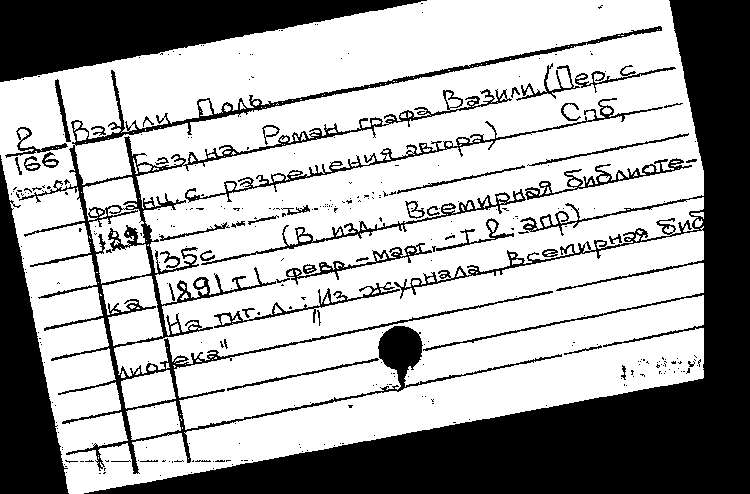 Вазили, Поль.
2
166
Бездна. Роман графа Вазили. (Пер. с
франц. с разрешения автора) Спб,
1891.
135с (В изд.: „Всемирная библиоте-
ка 1891 т 1 февр.-март. - т 2. апр)
На тит. л.: „Из журнала „Всемирная биб
лиотека".